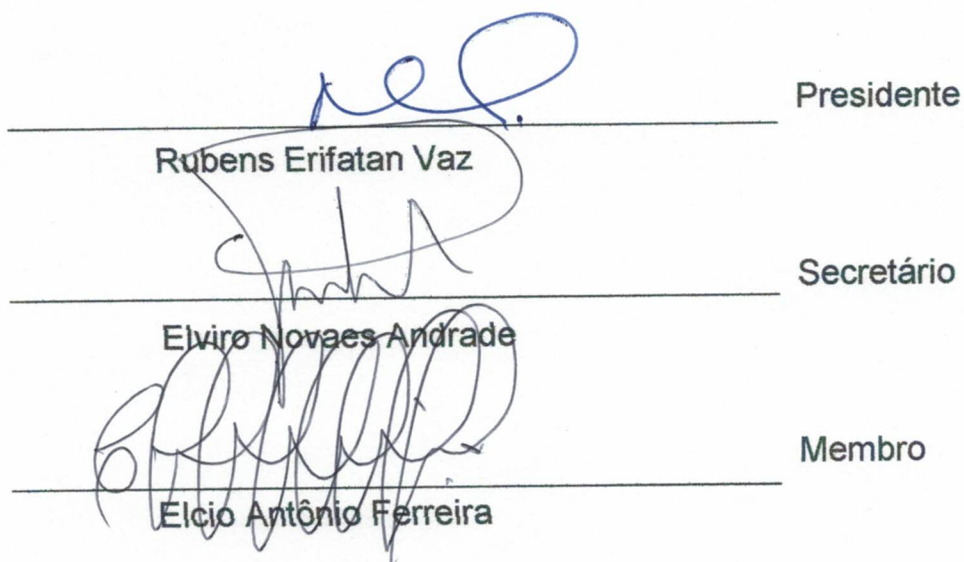 Presidente
Rubens Erifatan Vaz
Secretário
Elviro Novaes Andrade
Membro
Elcio Antônio Ferreira